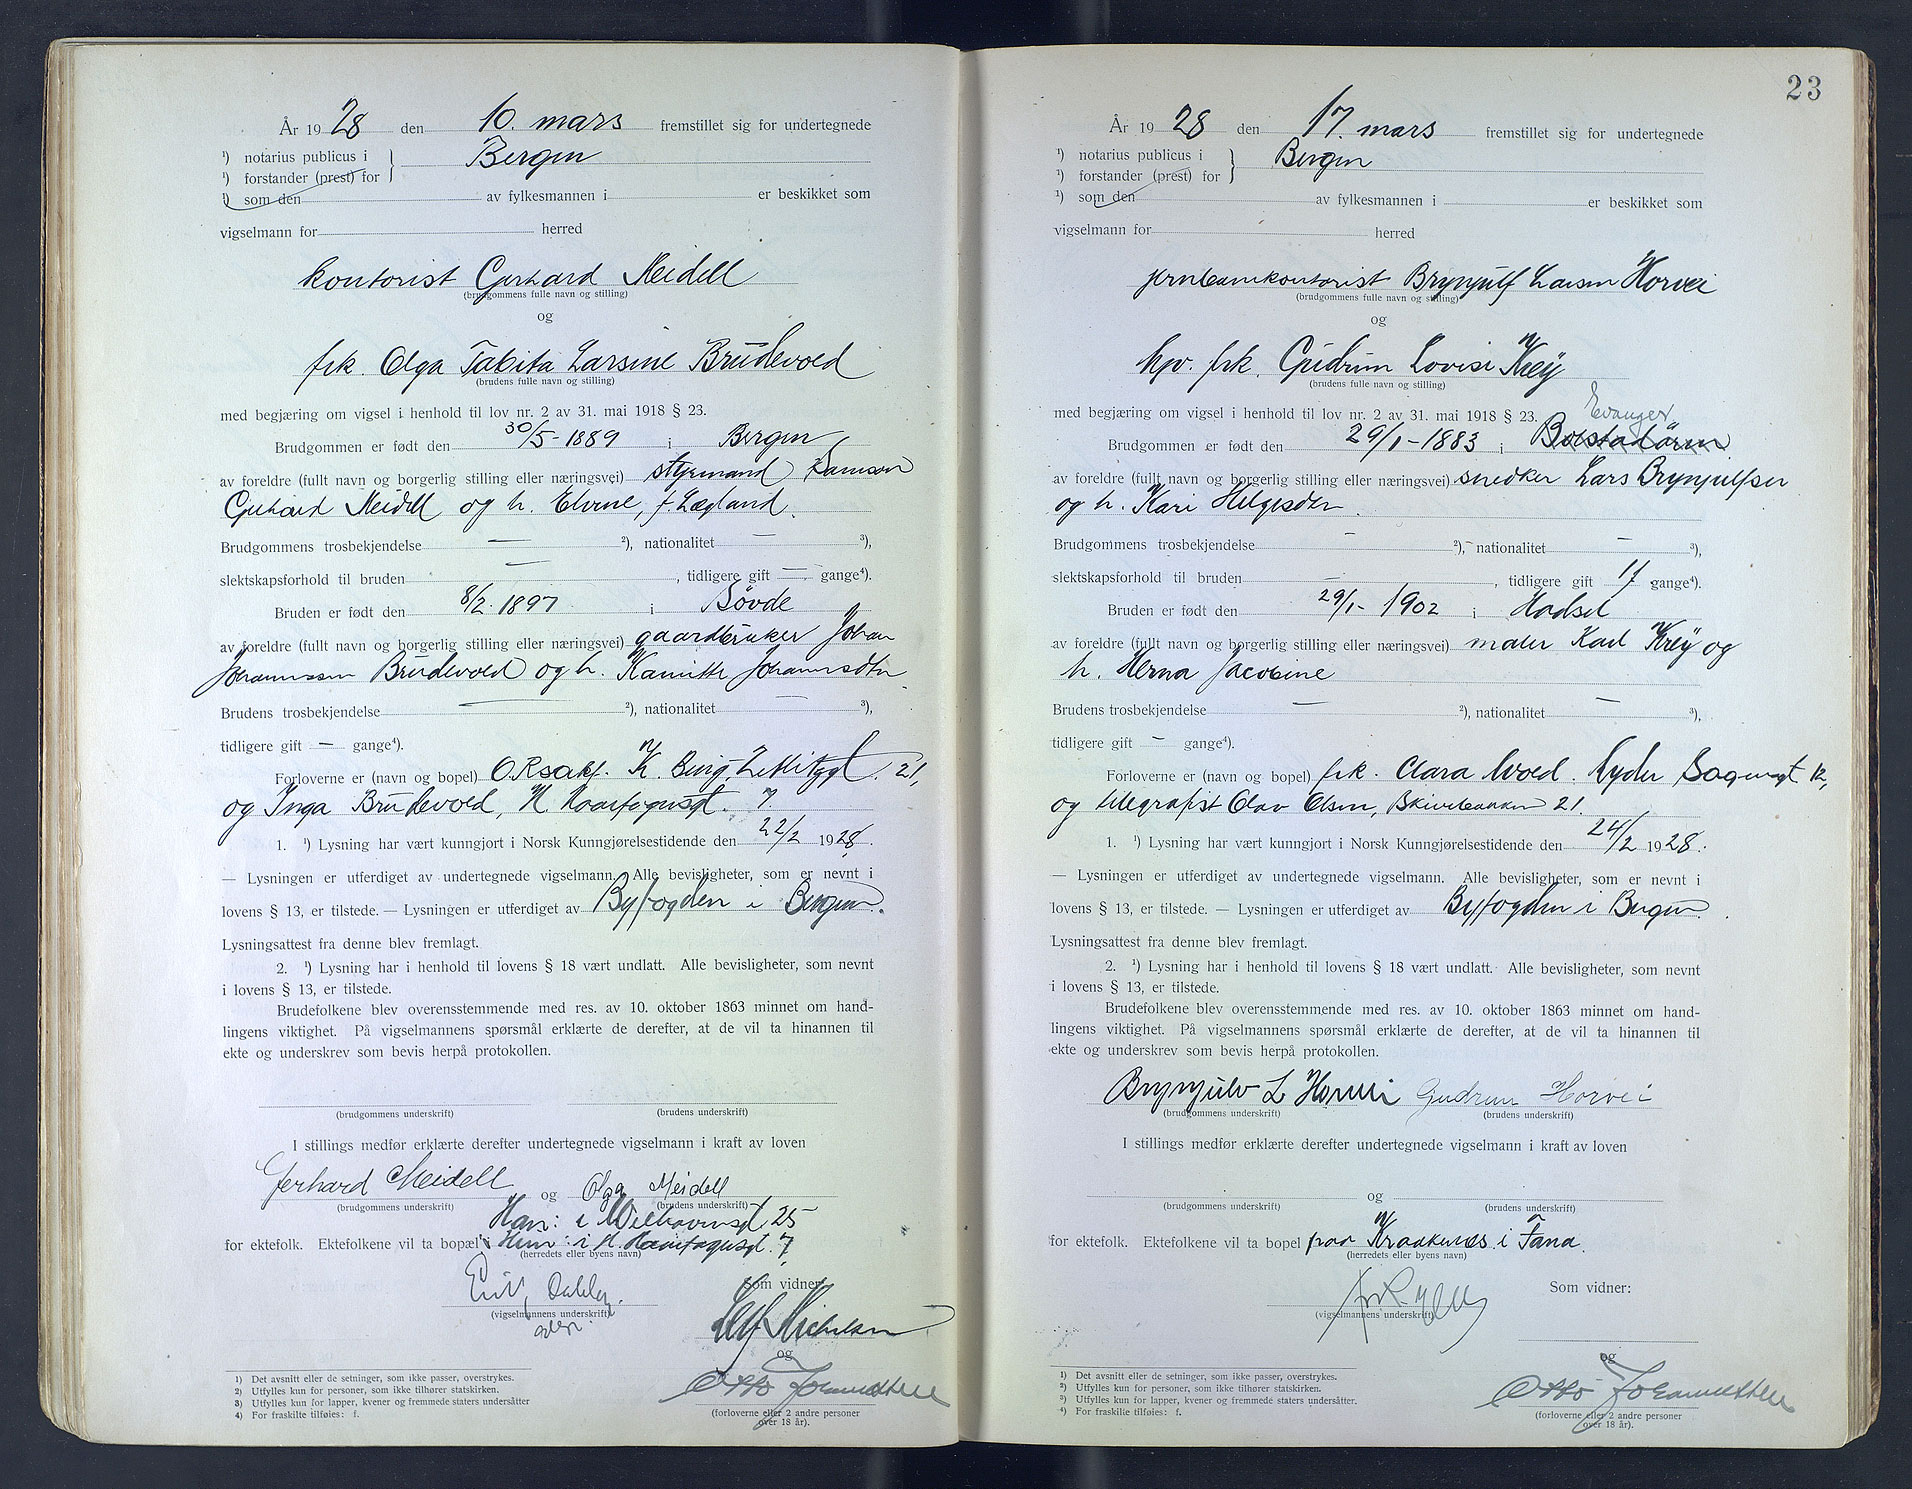 År 1928 den 10. mars fremstillet sig for undertegnede
¹) notarius publicus i Bergen
¹) forstander (prest) for
¹) som den av fylkesmannen i er beskikket som
vigselmann for herred
kontorist Gerhard Meidell
(brudgommens fulle navn og stilling)
og
frk. Olga Tabita Larsine Brudevold
(brudens fulle navn og stilling)
med begjæring om vigsel i henhold til lov nr. 2 av 31. mai 1918 § 23.
Brudgommen er født den 30/5-1889 i Bergen
av foreldre (fullt navn og borgerlig stilling eller næringsvei) styrmand Samson
Gerhard Meidell og h. Elvine, f. Lægland.
Brudgommens trosbekjendelse — ²), nationalitet — ³),
slektskapsforhold til bruden — , tidligere gift — gange⁴).
Bruden er født den 8/2. 1897 i Søvde
av foreldre (fullt navn og borgerlig stilling eller næringsvei) gaardbruker Johan
Johannessen Brudevold og h. Kamitte Johannesdtr
Brudens trosbekjendelse — ²), nationalitet — ³),
tidligere gift — gange⁴).
Forloverne er (navn og bopel) O.Rsakf. K. Berg, 21,
og Inga Brudevold, H. Haarfagresgt. 7.
1. ¹) Lysning har vært kunngjort i Norsk Kunngjørelsestidende den 22/2 1928.
— Lysningen er utferdiget av undertegnede vigselmann. Alle bevisligheter, som er nevnt i
lovens § 13, er tilstede. — Lysningen er utferdiget av Byfogden i Bergen.
Lysningsattest fra denne blev fremlagt.
2. ¹) Lysning har i henhold til lovens § 18 vært undlatt. Alle bevisligheter, som nevnt
i lovens § 13, er tilstede.
Brudefolkene blev overensstemmende med res. av 10. oktober 1863 minnet om hand-
lingens viktighet. På vigselmannens spørsmål erklærte de derefter, at de vil ta hinannen til
ekte og underskrev som bevis herpå protokollen.
(brudgommens underskrift) (brudens underskrift)
I stillings medfør erklærte derefter undertegnede vigselmann i kraft av loven
Gerhard Meidell og Olga Meidell
(brudgommens underskrift) (brudens underskrift)
Han: i Welhavensgt 25
for ektefolk. Ektefolkene vil ta bopæl i Hun: i H. Haarfagresgt. 7
(herredets eller byens navn)
Som vidner
(vigselmannens underskrift)
Leif Michelsen
og
Otto Johannessen
(forloverne eller 2 andre personer
over 18 år).
1) Det avsnitt eller de setninger, som ikke passer, overstrykes.
2) Utfylles kun for personer, som ikke tilhører statskirken.
3) Utfylles kun for lapper, kvener og fremmede staters undersåtter
4) For fraskilte tilføies: f.
23
År 1928 den 17. mars fremstillet sig for undertegnede
¹) notarius publicus i Bergen
¹) forstander (prest) for
¹) som den av fylkesmannen i er beskikket som
vigselmann for herred
jernbanekontorist Brynjulf Larsen Horvei
(brudgommens fulle navn og stilling)
og
hpv. frk. Gudrun Lovise Krey
(brudens fulle navn og stilling)
med begjæring om vigsel i henhold til lov nr. 2 av 31. mai 1918 § 23.
Evanger
Brudgommen er født den 29/1-1883 i Bolstadøren
av foreldre (fullt navn og borgerlig stilling eller næringsvei) snedker Lars Brynjulfsen
og h. Kari Helgesdtr.
Brudgommens trosbekjendelse — ²), nationalitet — ³),
slektskapsforhold til bruden — , tidligere gift 1 f gange⁴).
Bruden er født den 29/1- 1902 i Hadsel
av foreldre (fullt navn og borgerlig stilling eller næringsvei) maler Karl Krey og
h. Herna Jacobine
Brudens trosbekjendelse — ²), nationalitet — ³),
tidligere gift — gange⁴).
Forloverne er (navn og bopel) frk. Clara Wold. Lyder Sagensgt 12,
og telegrafist Olav Olsen, Skivebakken 21.
1. ¹) Lysning har vært kunngjort i Norsk Kunngjørelsestidende den 24/2 1928.
— Lysningen er utferdiget av undertegnede vigselmann. Alle bevisligheter, som er nevnt i
lovens § 13, er tilstede. — Lysningen er utferdiget av Byfogden i Bergen.
Lysningsattest fra denne blev fremlagt.
2. ¹) Lysning har i henhold til lovens § 18 vært undlatt. Alle bevisligheter, som nevnt
i lovens § 13, er tilstede.
Brudefolkene blev overensstemmende med res. av 10. oktober 1863 minnet om hand-
lingens viktighet. På vigselmannens spørsmål erklærte de derefter, at de vil ta hinannen til
ekte og underskrev som bevis herpå protokollen.
Brynjulv L Horvei Gudrun Horvei
(brudgommens underskrift) (brudens underskrift)
I stillings medfør erklærte derefter undertegnede vigselmann i kraft av loven
og
(brudgommens underskrift) (brudens underskrift)
for ektefolk. Ektefolkene vil ta bopel paa Kraakenes i Fana.
(herredets eller byens navn)
Som vidner:
(vigselmannens underskrift)
og
Otto Johannessen
(forloverne eller 2 andre personer
over 18 år).
1) Det avsnitt eller de setninger, som ikke passer, overstrykes.
2) Utfylles kun for personer, som ikke tilhører statskirken.
3) Utfylles kun for lapper, kvener og fremmede staters undersåtter.
4) For fraskilte tilføies: f.